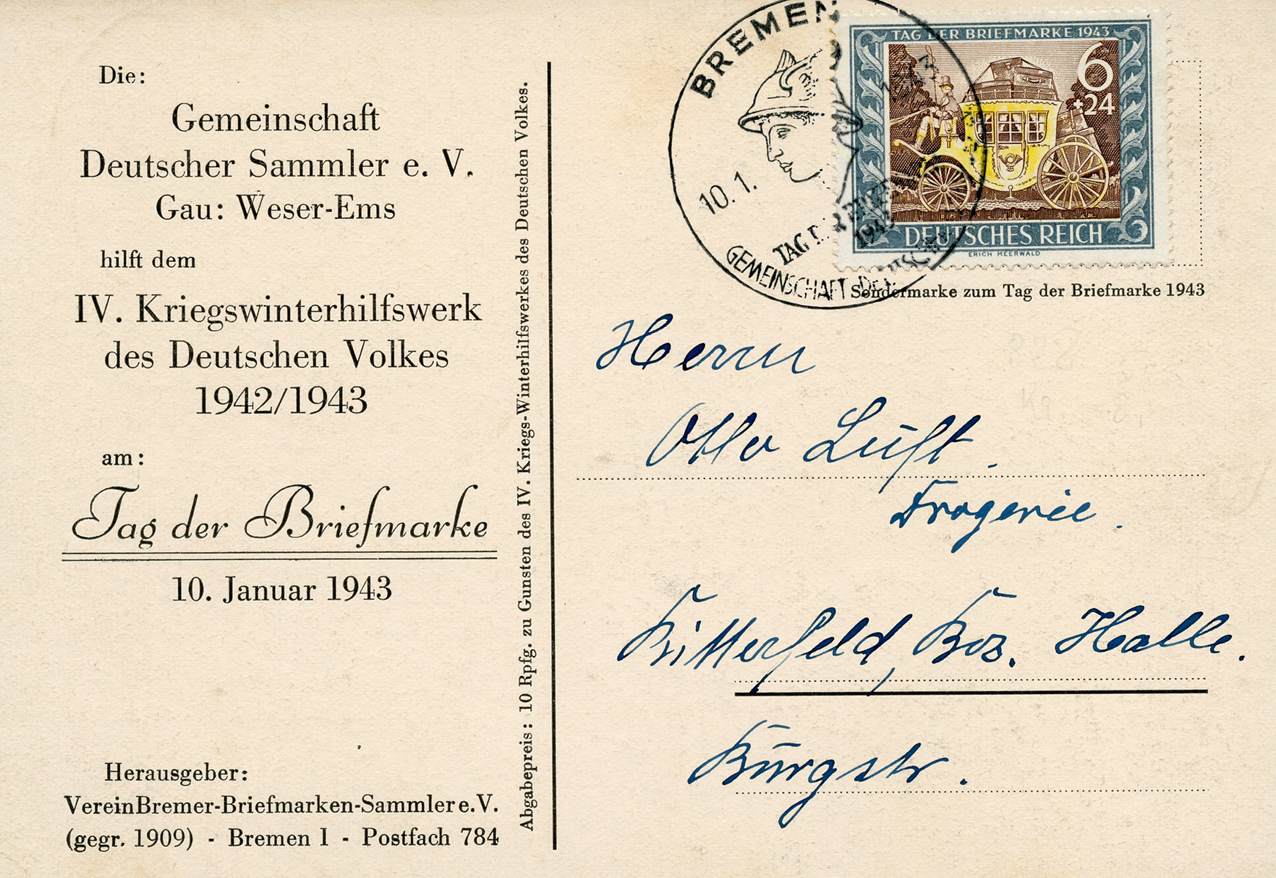 Die:
Gemeinschaft
Deutscher Sammler e. V.
Gau: Weser-Ems
hilft dem
IV. Kriegswinterhilfswerk
des Deutschen Volkes
1942/1943
am:
Tag der Briefmarke
10. Januar 1943
Herausgeber:
Verein Bremer-Briefmarken-Sammler e. V.
(gegr. 1909) - Bremen I - Postfach 784
Abgabepreis: 10 Rpfg. zu Gunsten des IV. Kriegs-Winterhilfswerkes des Deutschen Volkes.
BREMEN
10.1.
TAG DER
1943
GEMEINSCHAFT
TAG DER BRIEFMARKE 1943
6
+24
DEUTSCHES REICH
ERICH MEERWALD
Sondermarke zum Tag der Briefmarke 1943
Herrn
Otto Luft.
Drogerie.
Bitterfeld, Bez. Halle.
Burgstr.